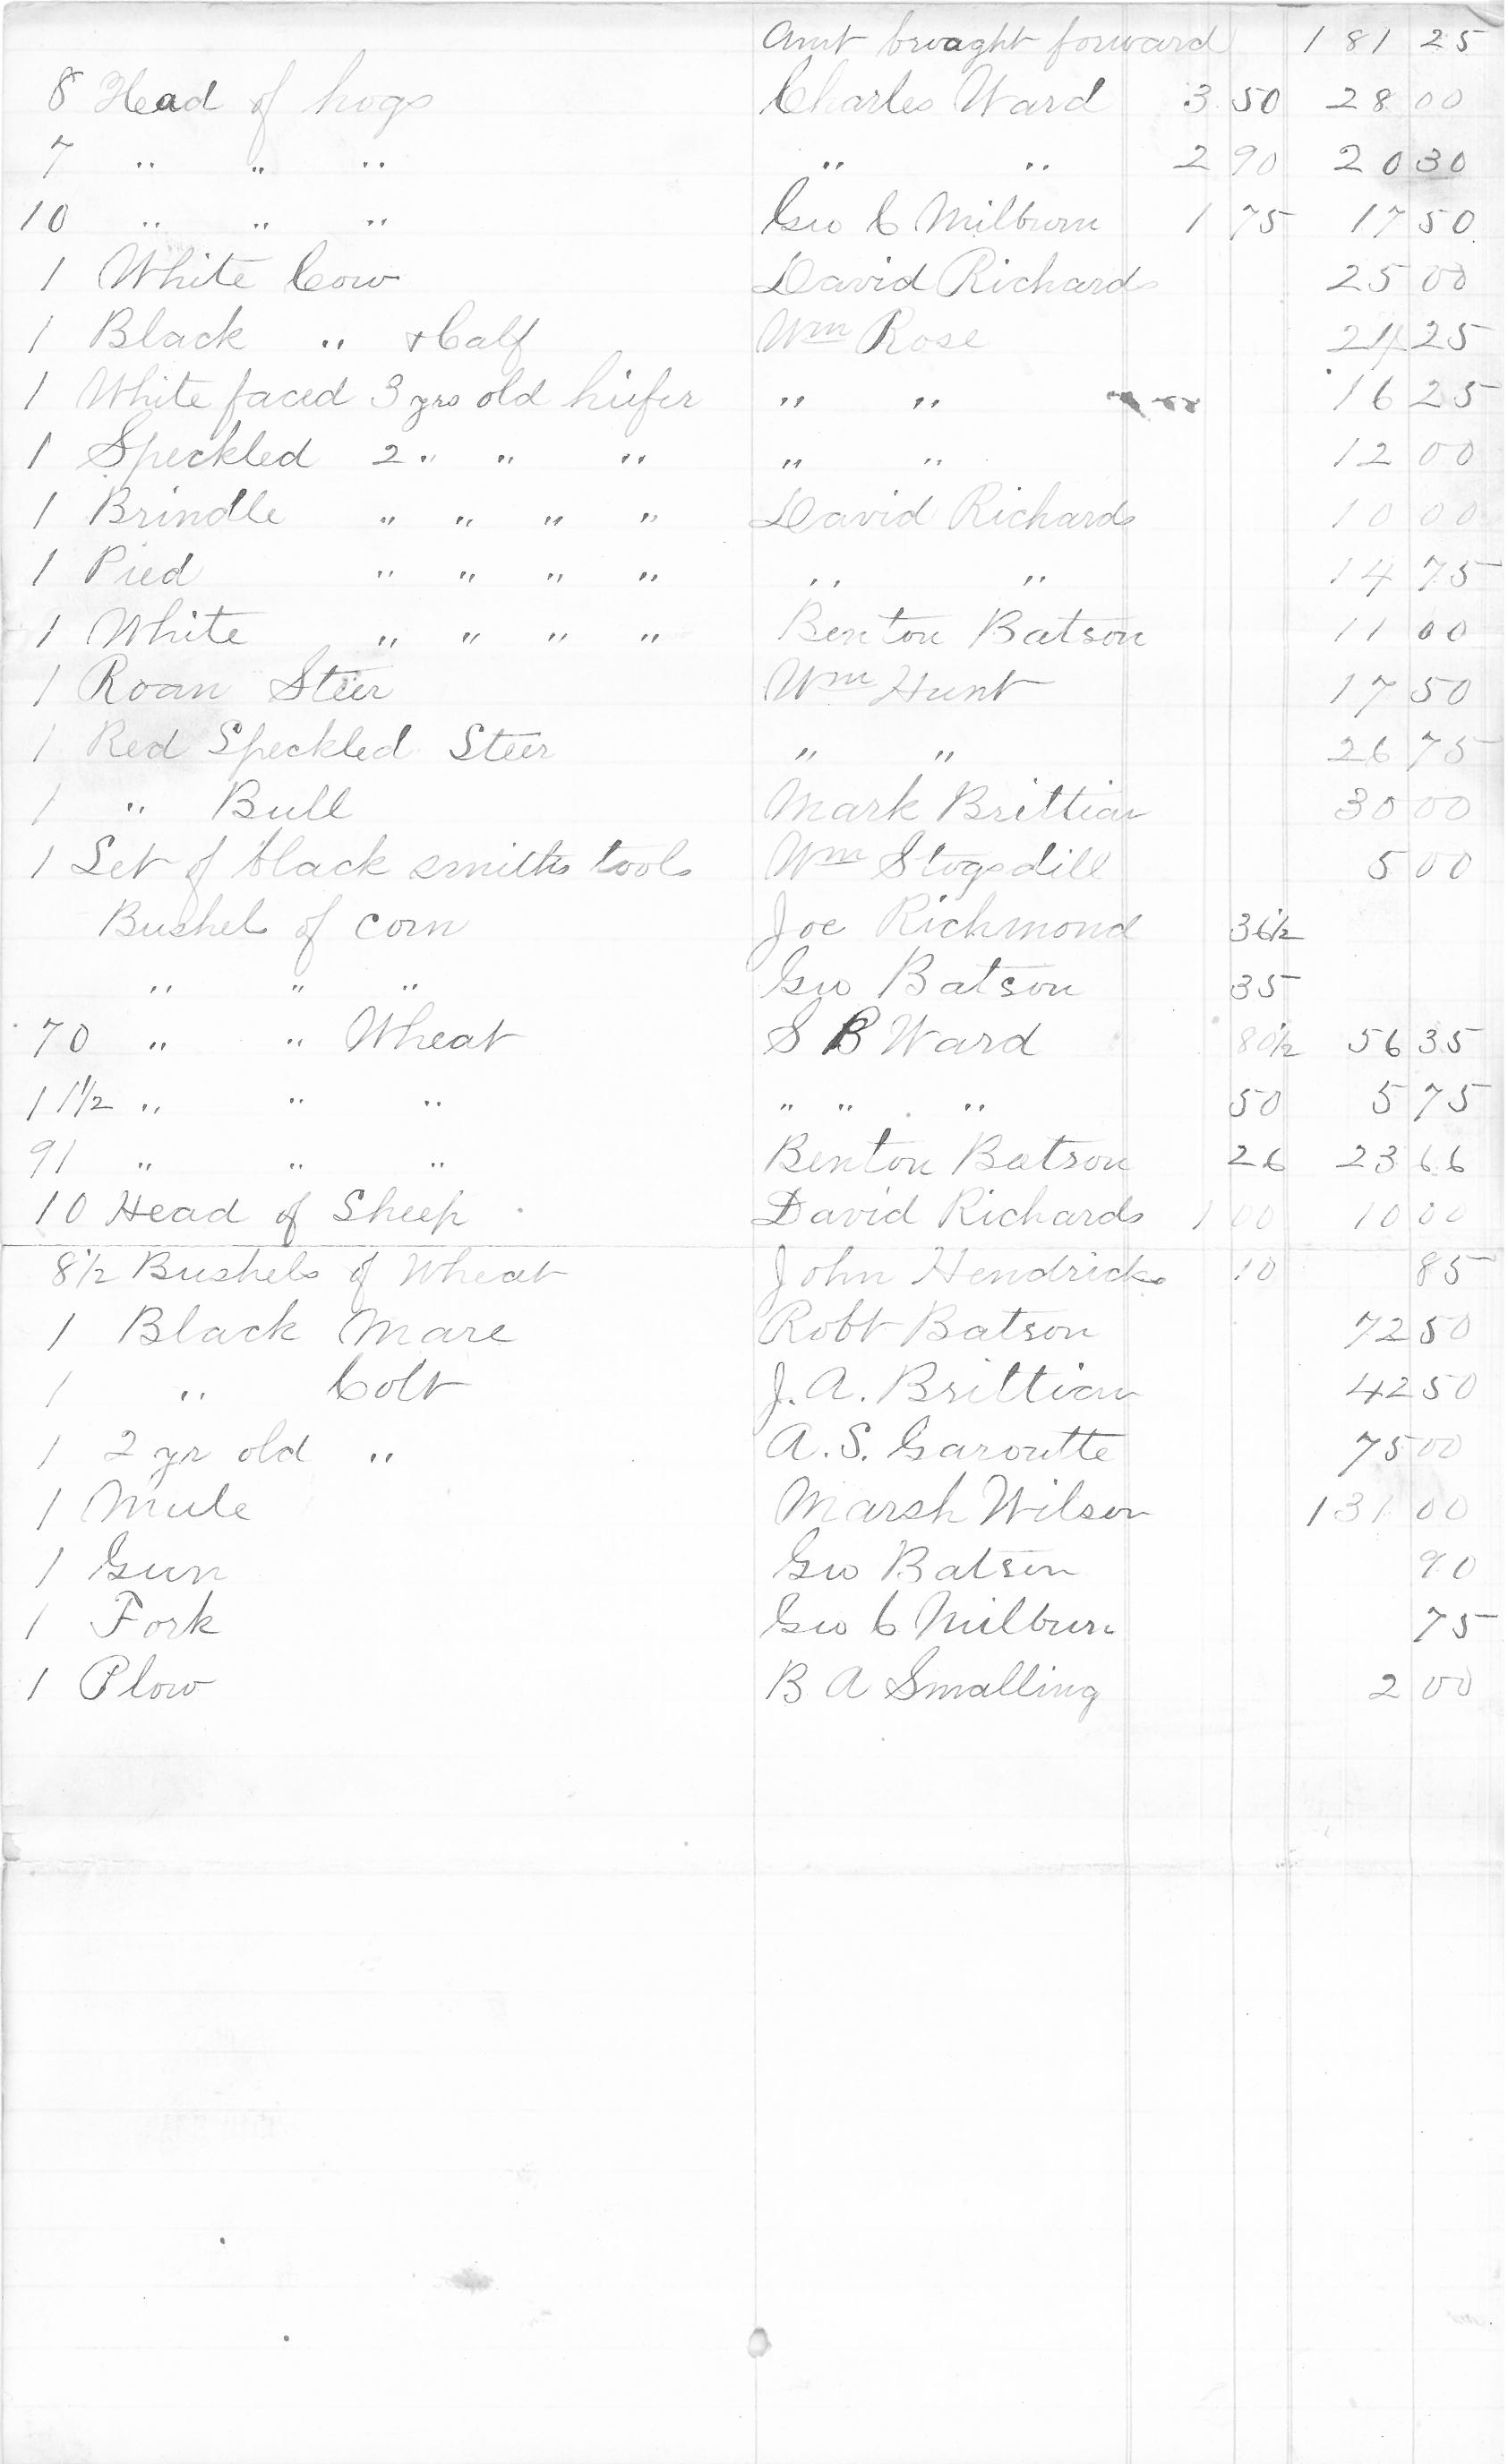 Amt brought forward 181 25
8 Head of hogs Charles Ward 3 50 28 00
7 " " " " " 2 90 20 30
10 " " " Geo C Milburn 1 75 17 50
1 White Cow David Richards 25 00
1 Black " & Calf Wm Rose 24 25
1 White faced 3 yrs old hiefer " " 16 25
1 Speckled 2 " " " " " 12 00
1 Brindle " " " " David Richards 10 00
1 Pied " " " " " " 14 75
1 White " " " " Benton Batson 11 00
1 Roan Steer Wm Hunt 17 50
1 Red Speckled Steer " " 26 75
1 " Bull Mark Brittian 30 00
1 Set of black smiths tools Wm Stogsdill 5 00
Bushels of corn Joe Richmond 36 1/2
" " " Geo Batson 35
70 " " Wheat S B Ward 80 1/2 56 35
11 1/2 " " " " " " 50 5 75
91 " " " Benton Batson 26 23 66
10 Head of Sheep David Richards 1 00 10 00
8 1/2 Bushels of Wheat John Hendricks 10 85
1 Black Mare Robt Batson 72 50
1 " Colt J. A. Brittian 42 50
1 2 yr old " A. S. Garoutte 75 00
1 Mule Marsh Wilson 131 00
1 Gun Geo Batson 90
1 Fork Geo C Milburn 75
1 Plow B A Smalling 2 00